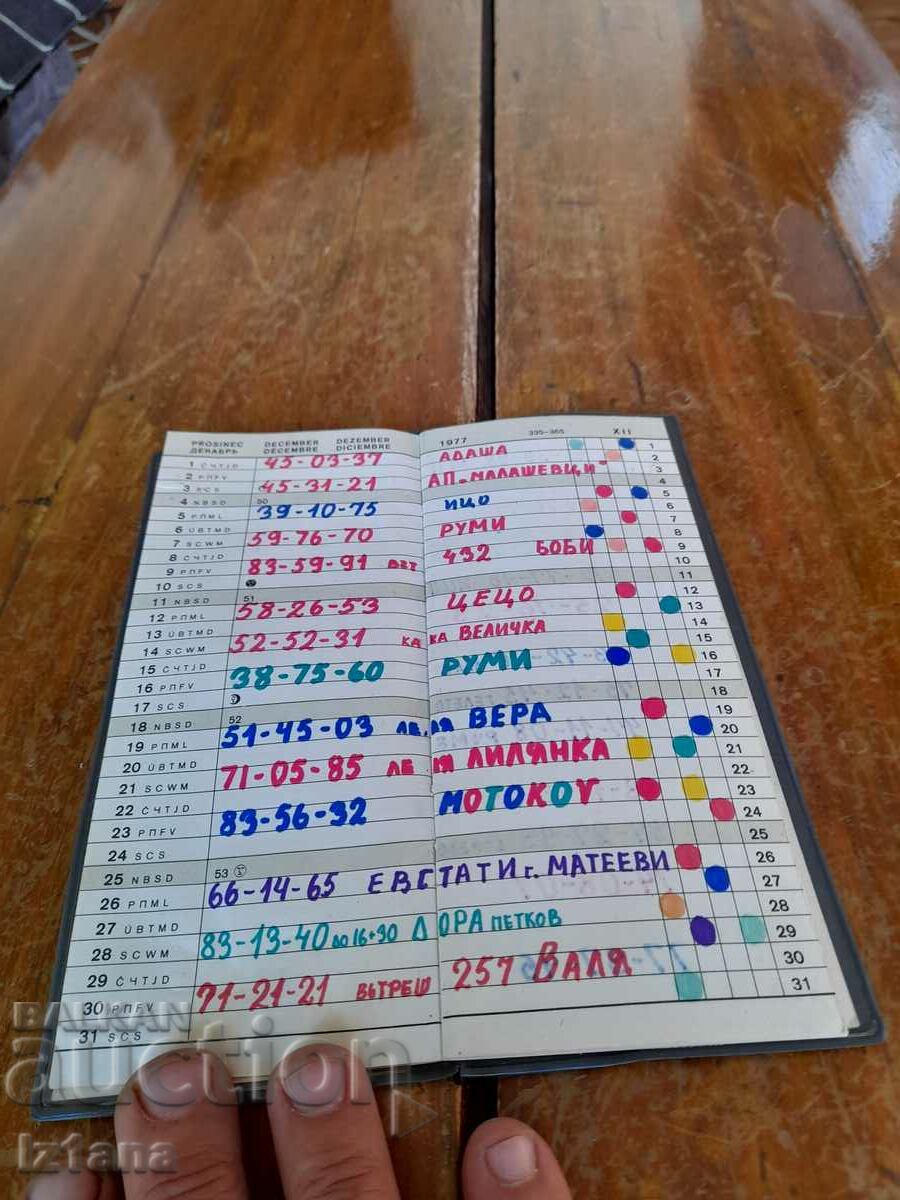 PROSINEC DECEMBER DEZEMBER 1977 335-365 XII
ДЕКАБРЬ DÉCEMBRE DICIEMBRE
1 ČЧTJD 45-03-37 АДАША 1
2 PПFV 2
3 SCS 45-31-21 АП. "МАЛАШЕВЦИ" 3
4 NBSD 50 4
5 PПML 39-10-75 ИЦО 5
6 ÚBTMD 6
7 SCWM 59-76-70 РУМИ 7
8 ČЧTJD 8
9 PПFV 83-59-91 ВЪТ 432 БОБИ 9
10 SCS 10
11 NBSD 51 11
12 PПML 58-26-53 ЦЕЦО 12
13 ÚBTMD 13
14 SCWM 52-52-31 КАКА ВЕЛИЧКА 14
15 ČЧTJD 15
16 PПFV 38-75-60 РУМИ 16
17 SCS 17
18 NBSD 52 18
19 PПML 51-45-03 ЛЕЛЯ ВЕРА 19
20 ÚBTMD 20
21 SCWM 71-05-85 ЛЕЛЯ ЛИЛЯНКА 21
22 ČЧTJD 22
23 PПFV 83-56-32 МОТОКОУ 23
24 SCS 24
25 NBSD 53 25
26 PПML 66-14-65 ЕВСТАТИ г. МАТЕЕВИ 26
27 ÚBTMD 27
28 SCWM 83-13-40 до 16+30 ДОРА ПЕТКОВ 28
29 ČЧTJD 29
30 PПFV 71-21-21 ВЪТРЕШ 257 ВАЛЯ 30
31 SCS 31
BALKAN
auction
Iztana